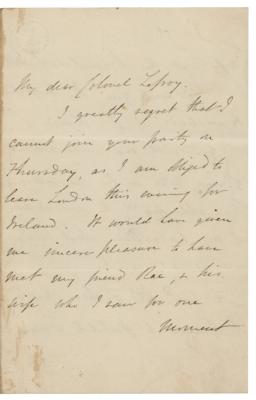 My dear Colonel Lefroy.
I greatly regret that I
cannot join your party on
Thursday, as I am obliged to
leave London this evening for
Ireland. It would have given
me sincere pleasure to have
met my friend Rae, & his
wife who I saw for one
moment